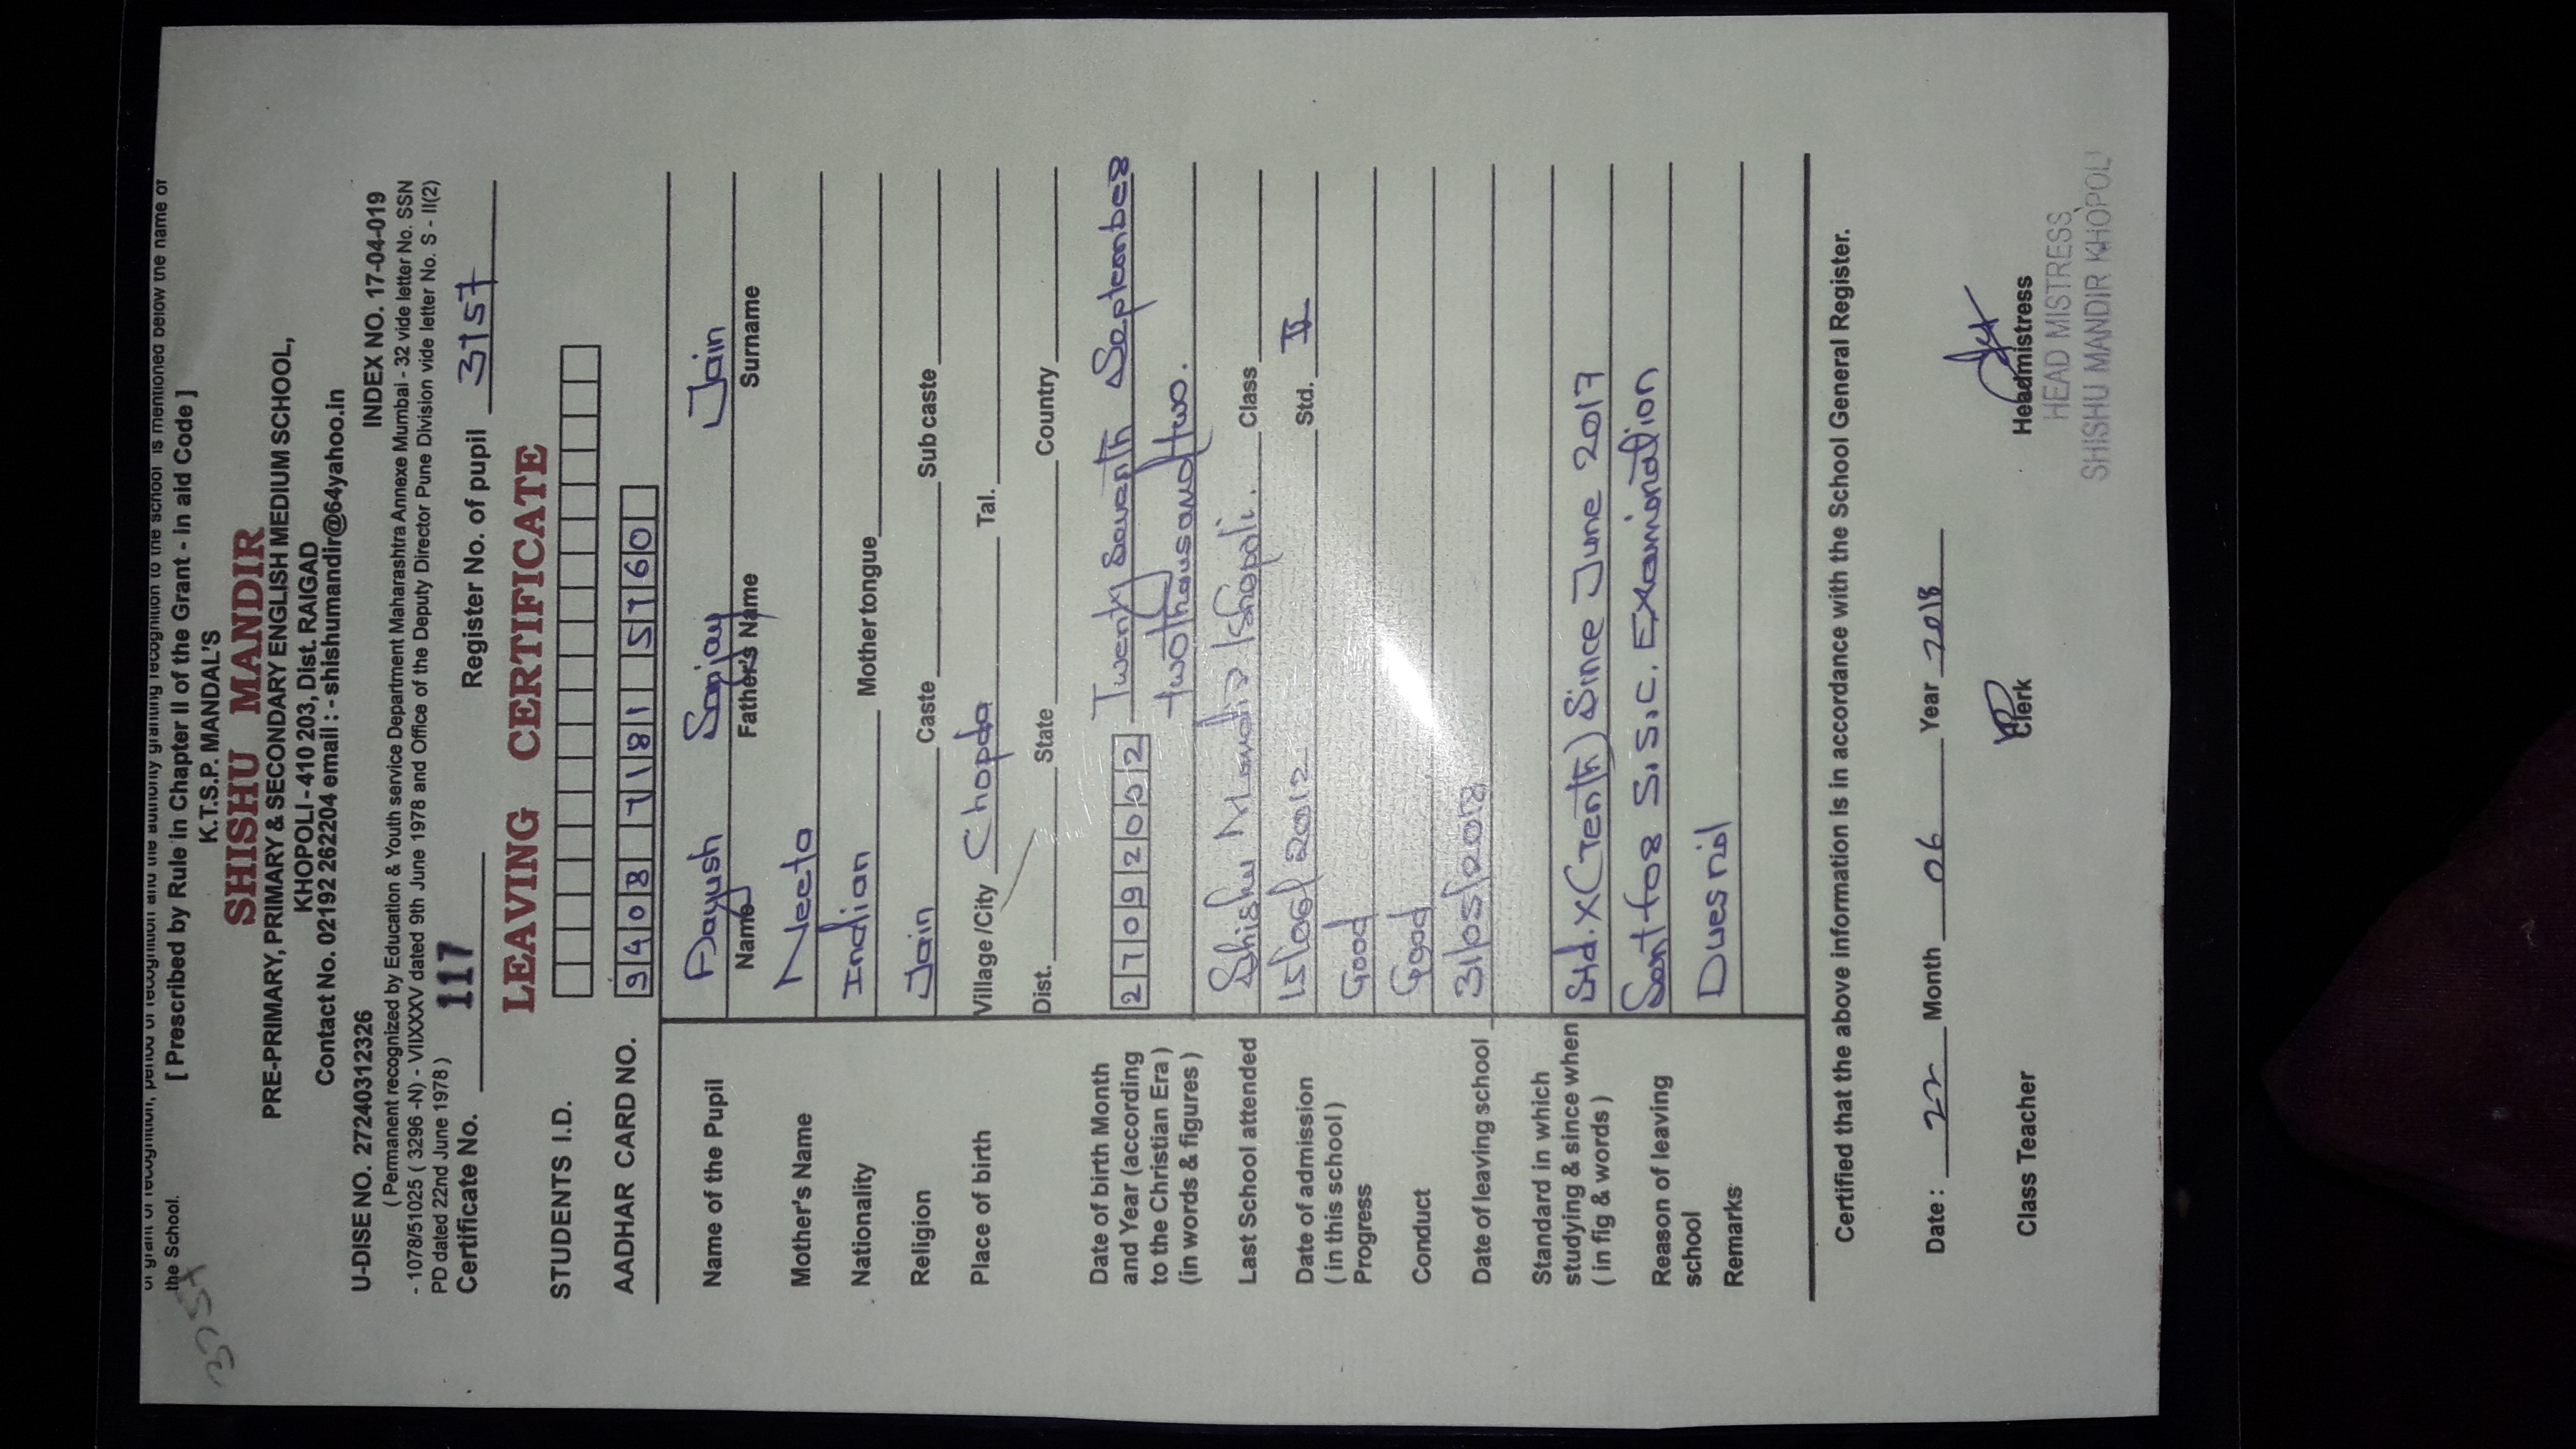 of grant of recognition, period of recognition and the authority granting recognition to the school is mentioned below the name of
the School.
[ Prescribed by Rule in Chapter II of the Grant - In aid Code ]
K.T.S.P. MANDAL'S
SHISHU MANDIR
PRE-PRIMARY, PRIMARY & SECONDARY ENGLISH MEDIUM SCHOOL,
KHOPOLI - 410 203, Dist. RAIGAD
Contact No. 02192 262204 email : - shishumandir@64yahoo.in
U-DISE NO. 27240312326 INDEX NO. 17-04-019
( Permanent recognized by Education & Youth service Department Maharashtra Annexe Mumbai - 32 vide letter No. SSN
- 1078/51025 ( 3296 -N) - VIIXXXV dated 9th June 1978 and Office of the Deputy Director Pune Division vide letter No. S - II(2)
PD dated 22nd June 1978 )
Certificate No. 117 Register No. of pupil 3757
LEAVING CERTIFICATE
STUDENTS I.D.
AADHAR CARD NO. 9408 7181 5760
Name of the Pupil Payush Sanjay Jain
Name Father's Name Surname
Mother's Name Neeta
Nationality Indian Mothertongue
Religion Jain Caste Subcaste
Place of birth Village /City Chopda Tal.
Dist. State Country
Date of birth Month 27092002 Twenty Seventh September
and Year (according two thousand two.
to the Christian Era )
(in words & figures )
Last School attended Shishu Mandir Khopoli. Class
Date of admission 15/06/2012 Std. V
( in this school )
Progress Good
Conduct Good
Date of leaving school 31/05/2018
Standard in which Std. X (Tenth) Since June 2017
studying & since when
( in fig & words )
Reason of leaving Sent for S.S.C. Examination
school
Remarks Dues nil
Certified that the above information is in accordance with the School General Register.
Date : 22 Month 06 Year 2018
Class Teacher Clerk Headmistress
HEAD MISTRESS
SHISHU MANDIR KHOPOLI